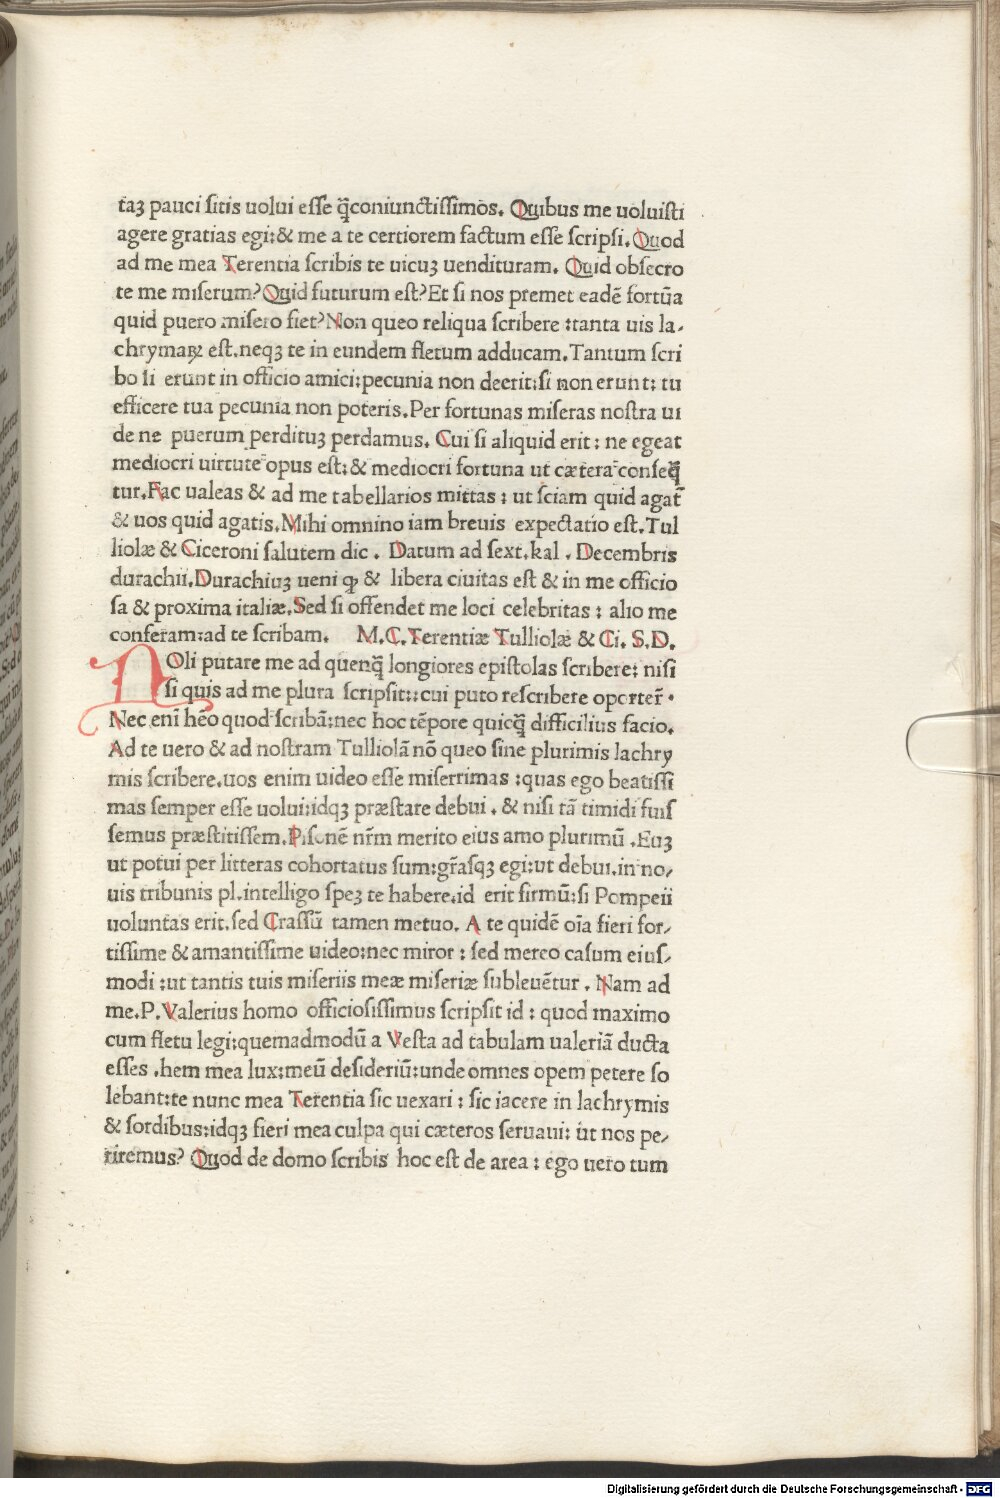 taꝫ pauci ſitis uolui eſſe q̄ȝconiunctiſſimos. Quibus me uoluiſti
agere gratias egi:& me a te certiorem factum eſſe ſcripſi. Quod
ad me mea Terentia ſcribis te uicuꝫ uendituram. Quid obſecro
te me miſerum? Quid futurum eſt? Et ſi nos premet eadē fortūa
quid puero miſero fiet? Non queo reliqua ſcribere :tanta uis la-
chrymaꝝ eſt.neqꝫ te in eundem fletum adducam.Tantum ſcri
bo ſi erunt in officio amici:pecunia non deerit:ſi non erunt: tu
efficere tua pecunia non poteris.Per fortunas miſeras noſtra ui
de ne puerum perdituꝫ perdamus. Cui ſi aliquid erit: ne egeat
mediocri uirtute opus eſt:& mediocri fortuna ut cætera conſeq̄
tur.Fac ualeas & ad me tabellarios mittas : ut ſciam quid agat᷑
& uos quid agatis.Mihi omnino iam breuis expectatio eſt.Tul
liolæ & Ciceroni ſalutem dic . Datum ad ſext.kal . Decembris
durachii.Durachiuꝫ ueni ꝙ & libera ciuitas eſt & in me officio
ſa & proxima italiæ.Sed ſi offendet me loci celebritas : alio me
conferam:ad te ſcribam. M.C.Terentiæ Tulliolæ & Ci. S.D.
NOli putare me ad quenq̄ȝ longiores epiſtolas ſcribere: niſi
ſi quis ad me plura ſcripſit:cui puto reſcribere oportet᷑ .
Nec enī hēo quod ſcribā:nec hoc tēpore quicq̄ȝ difficilius facio.
Ad te uero & ad noſtram Tulliolā nō queo ſine plurimis lachry
mis ſcribere.uos enim uideo eſſe miſerrimas :quas ego beatiſſi
mas ſemper eſſe uolui:idqꝫ præſtare debui . & niſi tā timidi fuiſ
ſemus præſtitiſſem.Piſonē nr̄m merito eius amo plurimū .Euꝫ
ut potui per litteras cohortatus ſum:gr̄aſqꝫ egi:ut debui.in no-
uis tribunis pl.intelligo ſpeꝫ te habere.id erit firmū:ſi Pompeii
uoluntas erit.ſed Craſſū tamen metuo. A te quidē oīa fieri for-
tiſſime & amantiſſime uideo:nec miror : ſed mereo caſum eiuſ-
modi :ut tantis tuis miſeriis meæ miſeriæ ſubleuētur . Nam ad
me.P.Valerius homo officioſiſſimus ſcripſit id : quod maximo
cum fletu legi:quemadmodū a Veſta ad tabulam ualeriā ducta
eſſes .hem mea lux:meū deſideriū:unde omnes opem petere ſo
lebant:te nunc mea Terentia ſic uexari : ſic iacere in lachrymis
& ſordibus:idqꝫ fieri mea culpa qui cæteros ſeruaui: ut nos pe-
riremus? Quod de domo ſcribis hoc eſt de area : ego uero tum
Digitalisierung gefördert durch die Deutsche Forschungsgemeinschaft - DFG